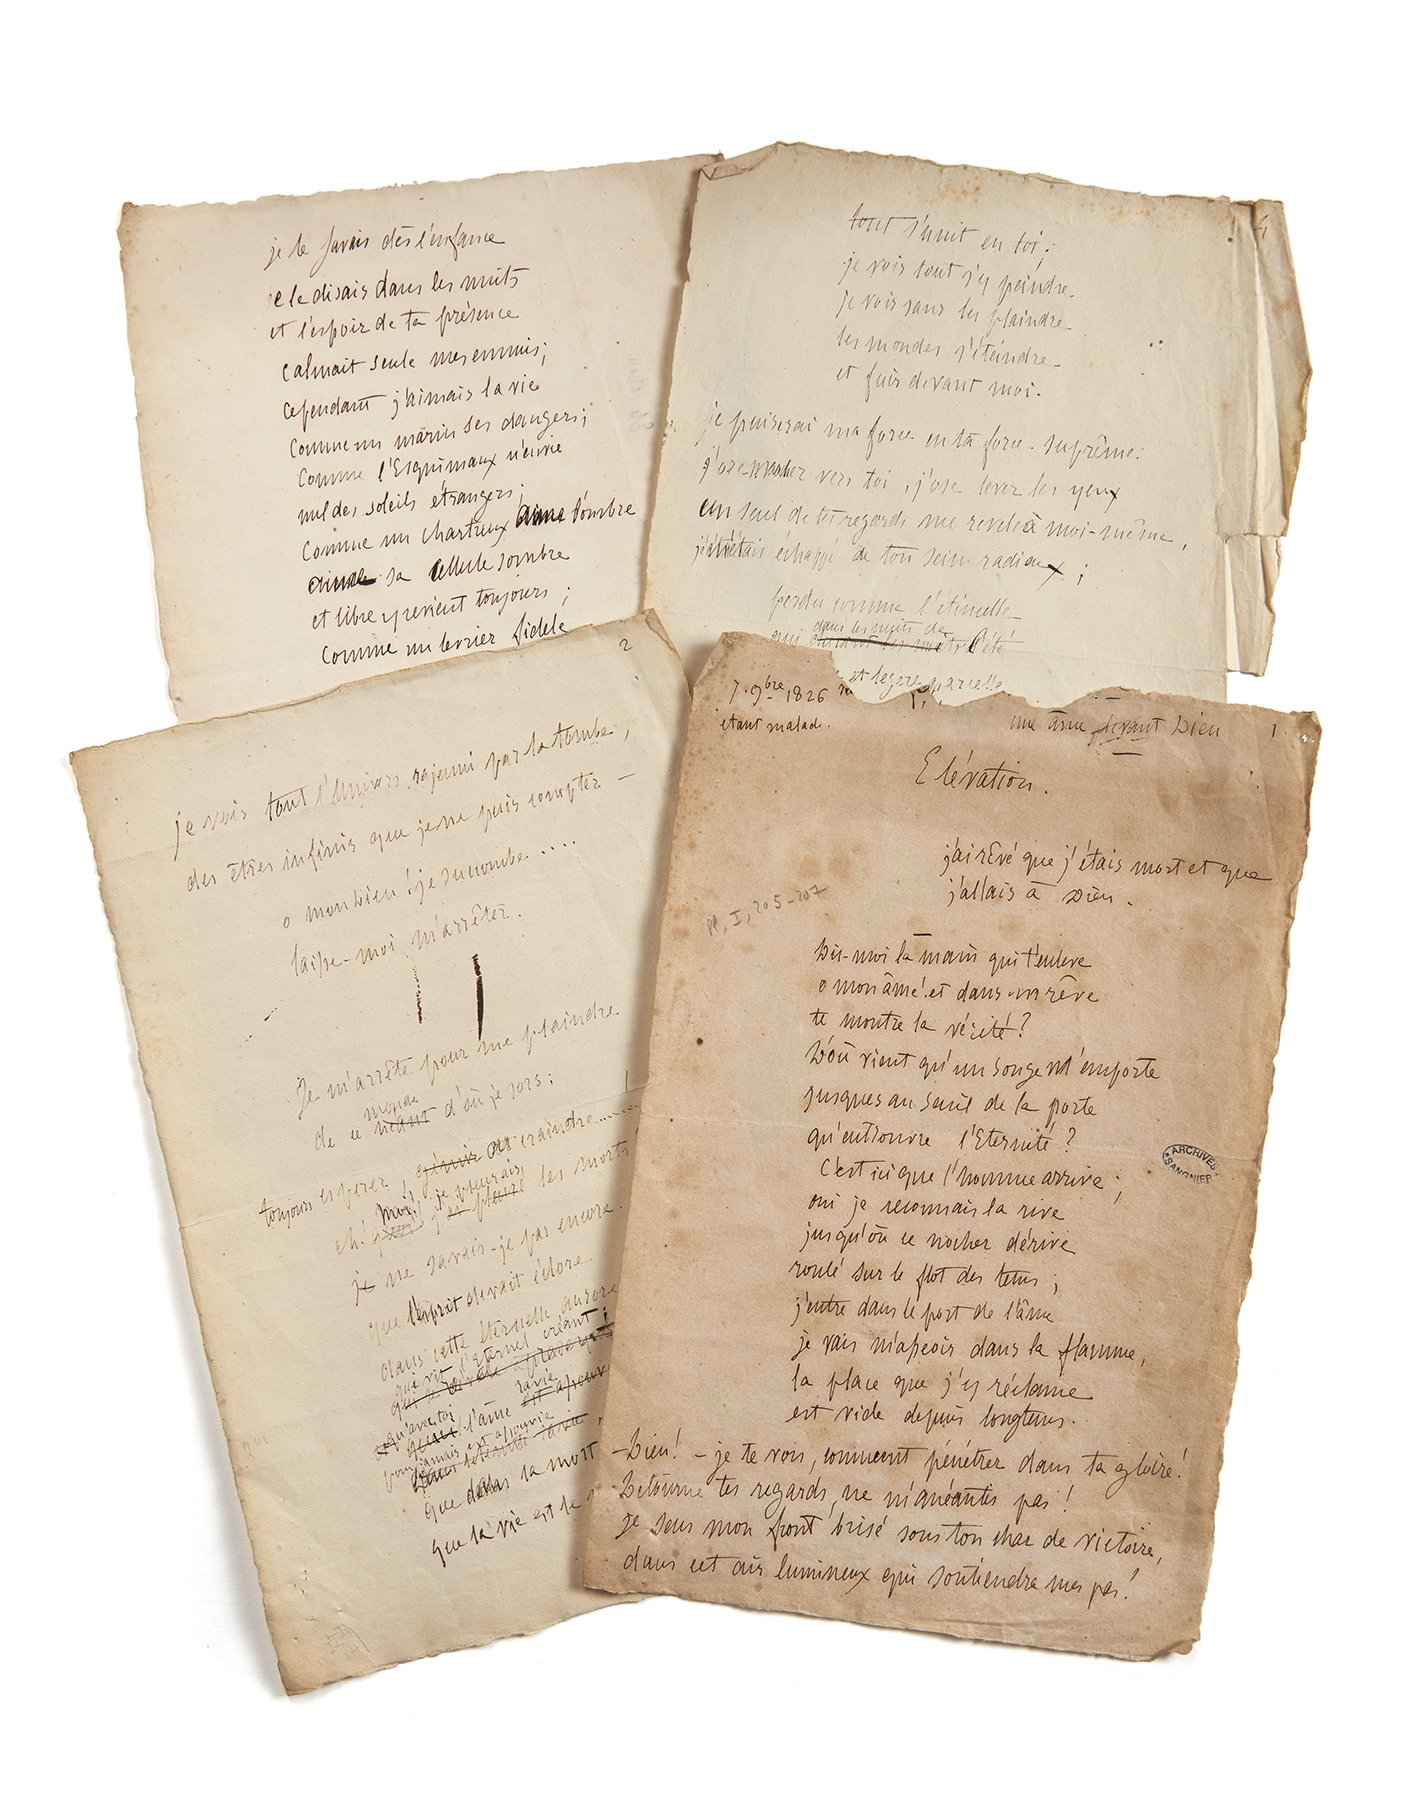 je le savais dès l'enfance
je le disais dans les nuits
et l'espoir de ta présence
calmait seule mes ennuis ;
cependant j'aimais la vie
comme un marin ses dangers ;
comme l'Esquimaux n'envie
nul des soleils étrangers ;
comme un chartreux aime l'ombre
aime sa cellule sombre
et libre y revient toujours ;
comme un levrier fidele
4
tout s'unit en toi ;
je vois tout s'y peindre
je vois sans les plaindre
les mondes s'éteindre
et fuir devant moi.
je puiserai ma force en ta force suprême.
j'ose marcher vers toi, j'ose lever les yeux
un seul de tes regards me revele à moi-même,
j'étais échappé de ton sein radieux ;
perdu comme l'étincelle
dans les nuits de
qui l'été
et legere parcelle
2
je vois tout l'Univers rajeuni par la tombe,
des êtres infinis que je ne puis compter —
o mon Dieu ! je succombe ....
laisse-moi m'arrêter.
Je m'arrête pour me plaindre
monde
de ce néant d'où je sors :
toujours esperer, gémir et craindre......
moi je pleurais
eh ! quoi ! j'ai pleuré les morts
je ne savais-je pas encore.
que l'esprit devait éclore
dans cette éternelle aurore
que vit l'Eternel créant ;
qu'avec toi ravie
l'âme
pour jamais est assouvie
que dans la mort
que la vie est le
7. 9bre 1826
etant malade.
une âme devant Dieu
1
Elévation.
j'ai rêvé que j'étais mort et que
j'allais à Dieu.
Pl, I, 205-207
Dis-moi la main qui t'enleve
o mon âme ! et dans un rêve
te montre la vérité ?
D'où vient qu'un songe m'emporte
jusques au seuil de la porte
qu'entrouvre l'Eternité ?
C'est ici que l'homme arrive ;
oui je reconnais la rive
jusqu'où ce nocher dérive
roulé sur le flot des tems ;
j'entre dans le port de l'âme
je vais m'asseoir dans la flamme,
la place que j'y réclame
est vide depuis longtems.
ARCHIVES
SANGNIER
— Dieu ! — je te vois, comment pénétrer dans ta gloire !
Detourne tes regards, ne m'anéantis pas !
je sens mon front brisé sous ton char de victoire,
dans cet air lumineux qui soutiendra mes pas !